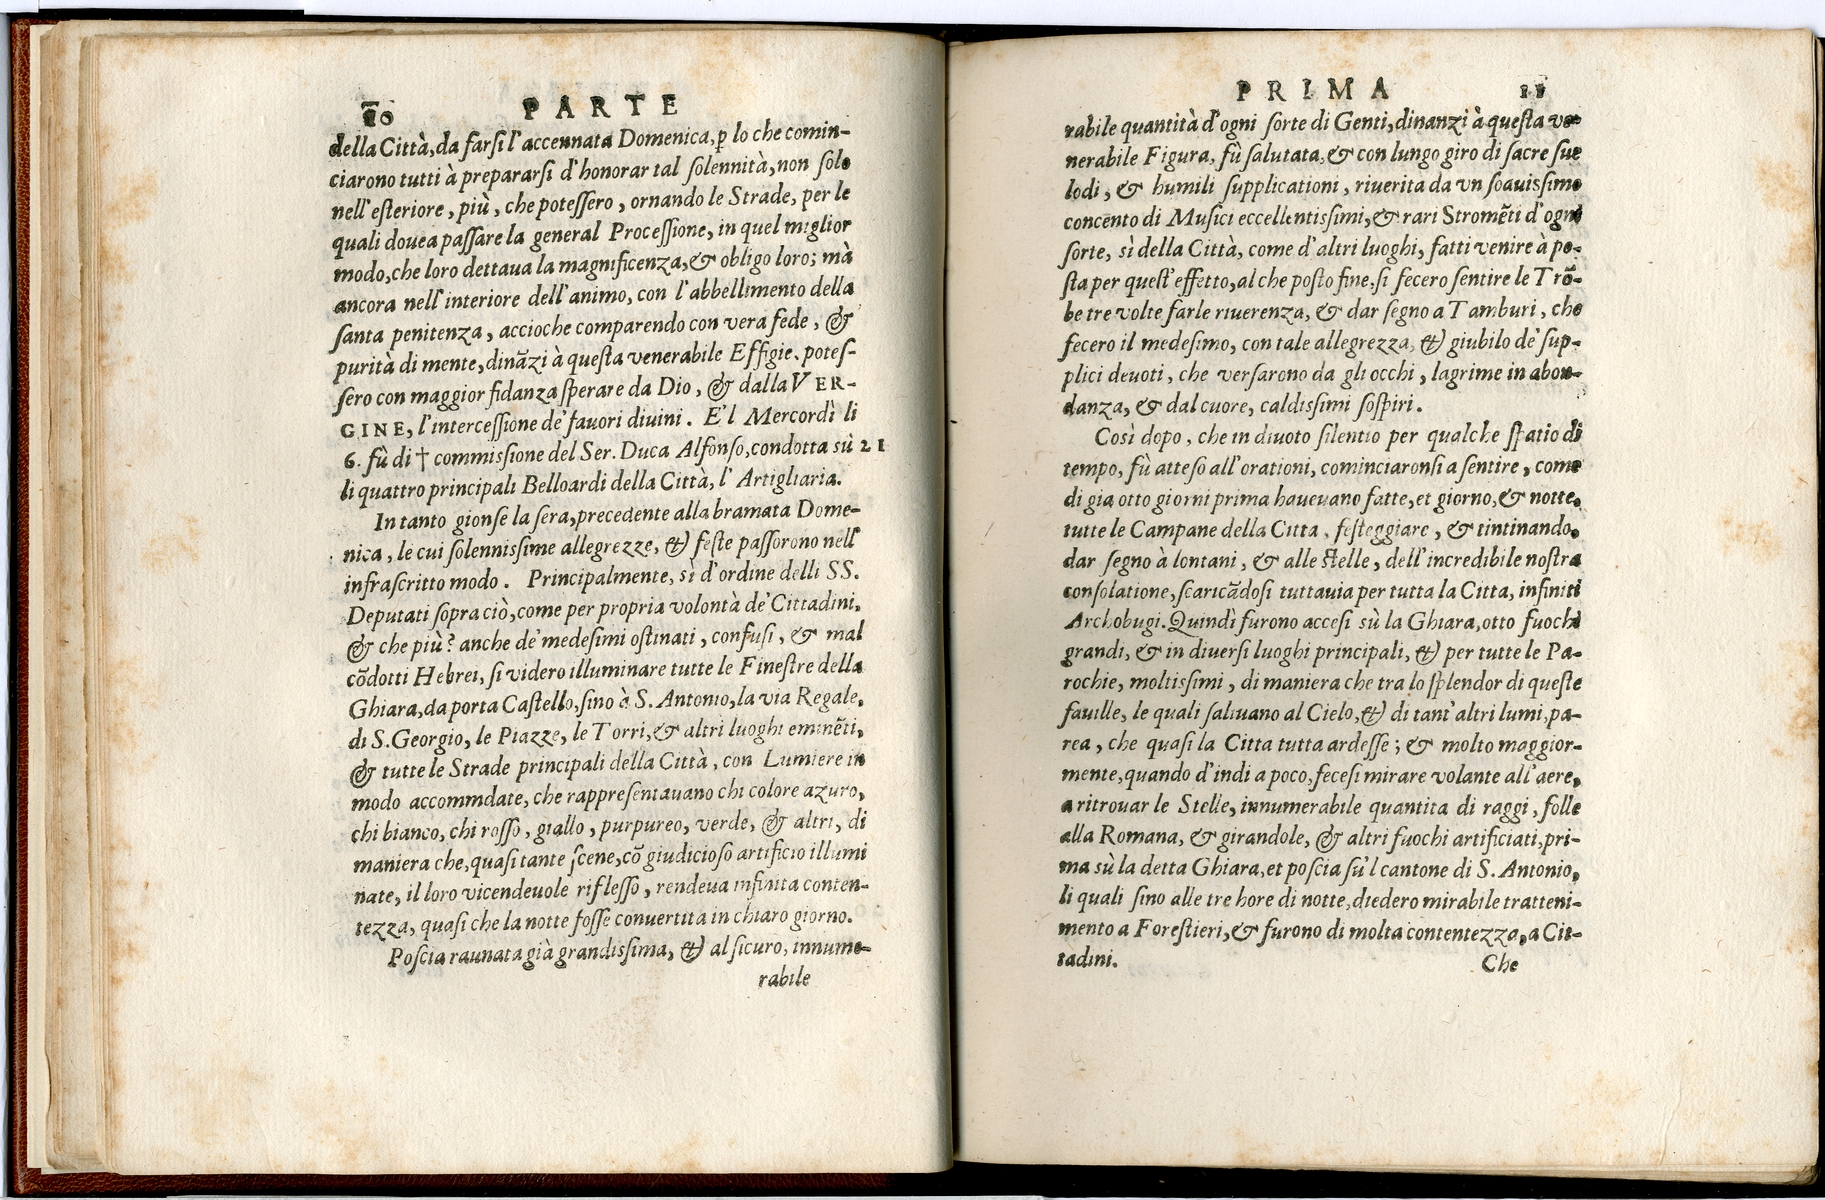 10 PARTE
della Città, da farsi l'accennata Domenica, ꝑ lo che comin-
ciarono tutti à prepararsi d'honorar tal solennità, non solo
nell'esteriore, più, che potessero, ornando le Strade, per le
quali douea passare la general Processione, in quel miglior
modo, che loro dettaua la magnificenza, & obligo loro; mà
ancora nell'interiore dell'animo, con l'abbellimento della
santa penitenza, accioche comparendo con vera fede, &
purità di mente, dinãzi à questa venerabile Effigie, potes-
sero con maggior fidanza sperare da Dio, & dalla VER-
GINE, l'intercessione de' fauori diuini. E'l Mercordì li
6. fù di † commissione del Ser. Duca Alfonso, condotta sù 21
li quattro principali Belloardi della Città, l'Artigliaria.
In tanto gionse la sera, precedente alla bramata Dome-
nica, le cui solennissime allegrezze, & feste passorono nell'
infrascritto modo. Principalmente, sì d'ordine delli SS.
Deputati sopra ciò, come per propria volontà de' Cittadini,
& che più? anche de' medesimi ostinati, confusi, & mal
cõdotti Hebrei, si videro illuminare tutte le Finestre della
Ghiara, da porta Castello, sino à S. Antonio, la via Regale,
di S. Georgio, le Piazze, le Torri, & altri luoghi eminẽti,
& tutte le Strade principali della Città, con Lumiere in
modo accommdate, che rappresentauano chi colore azuro,
chi bianco, chi rosso, giallo, purpureo, verde, & altri, di
maniera che, quasi tante scene, cõ giudicioso artificio illumi
nate, il loro vicendeuole riflesso, rendeua infinita conten-
tezza, quasi che la notte fosse conuertita in chiaro giorno.
Poscia raunata già grandissima, & al sicuro, innume-
rabile
PRIMA 11
rabile quantità d'ogni sorte di Genti, dinanzi à questa ve-
nerabile Figura, fù salutata, & con lungo giro di sacre sue
lodi, & humili supplicationi, riuerita da vn soauissimo
concento di Musici eccellentissimi, & rari Stromẽti d'ogni
sorte, sì della Città, come d'altri luoghi, fatti venire à po-
sta per quest'effetto, al che posto fine, si fecero sentire le Trõ-
be tre volte farle riuerenza, & dar segno a Tamburi, che
fecero il medesimo, con tale allegrezza, & giubilo de' sup-
plici deuoti, che versarono da gli occhi, lagrime in abon-
danza, & dal cuore, caldissimi sospiri.
Così dopo, che in diuoto silentio per qualche spatio di
tempo, fù atteso all'orationi, cominciaronsi a sentire, come
di gia otto giorni prima haueuano fatte, et giorno, & notte,
tutte le Campane della Citta, festeggiare, & tintinando,
dar segno à lontani, & alle stelle, dell'incredibile nostra
consolatione, scaricãdosi tuttauia per tutta la Citta, infiniti
Archobugi. Quindì furono accesi sù la Ghiara, otto fuochi
grandi, & in diuersi luoghi principali, & per tutte le Pa-
rochie, moltissimi, di maniera che tra lo splendor di queste
fauille, le quali saliuano al Cielo, & di tant'altri lumi, pa-
rea, che quasi la Citta tutta ardesse; & molto maggior-
mente, quando d'indi a poco, fecesi mirare volante all'aere,
a ritrouar le Stelle, innumerabile quantita di raggi, folle
alla Romana, & girandole, & altri fuochi artificiati, pri-
ma sù la detta Ghiara, et poscia sù'l cantone di S. Antonio,
li quali sino alle tre hore di notte, diedero mirabile tratteni-
mento a Forestieri, & furono di molta contentezza, a Cit-
tadini.
Che